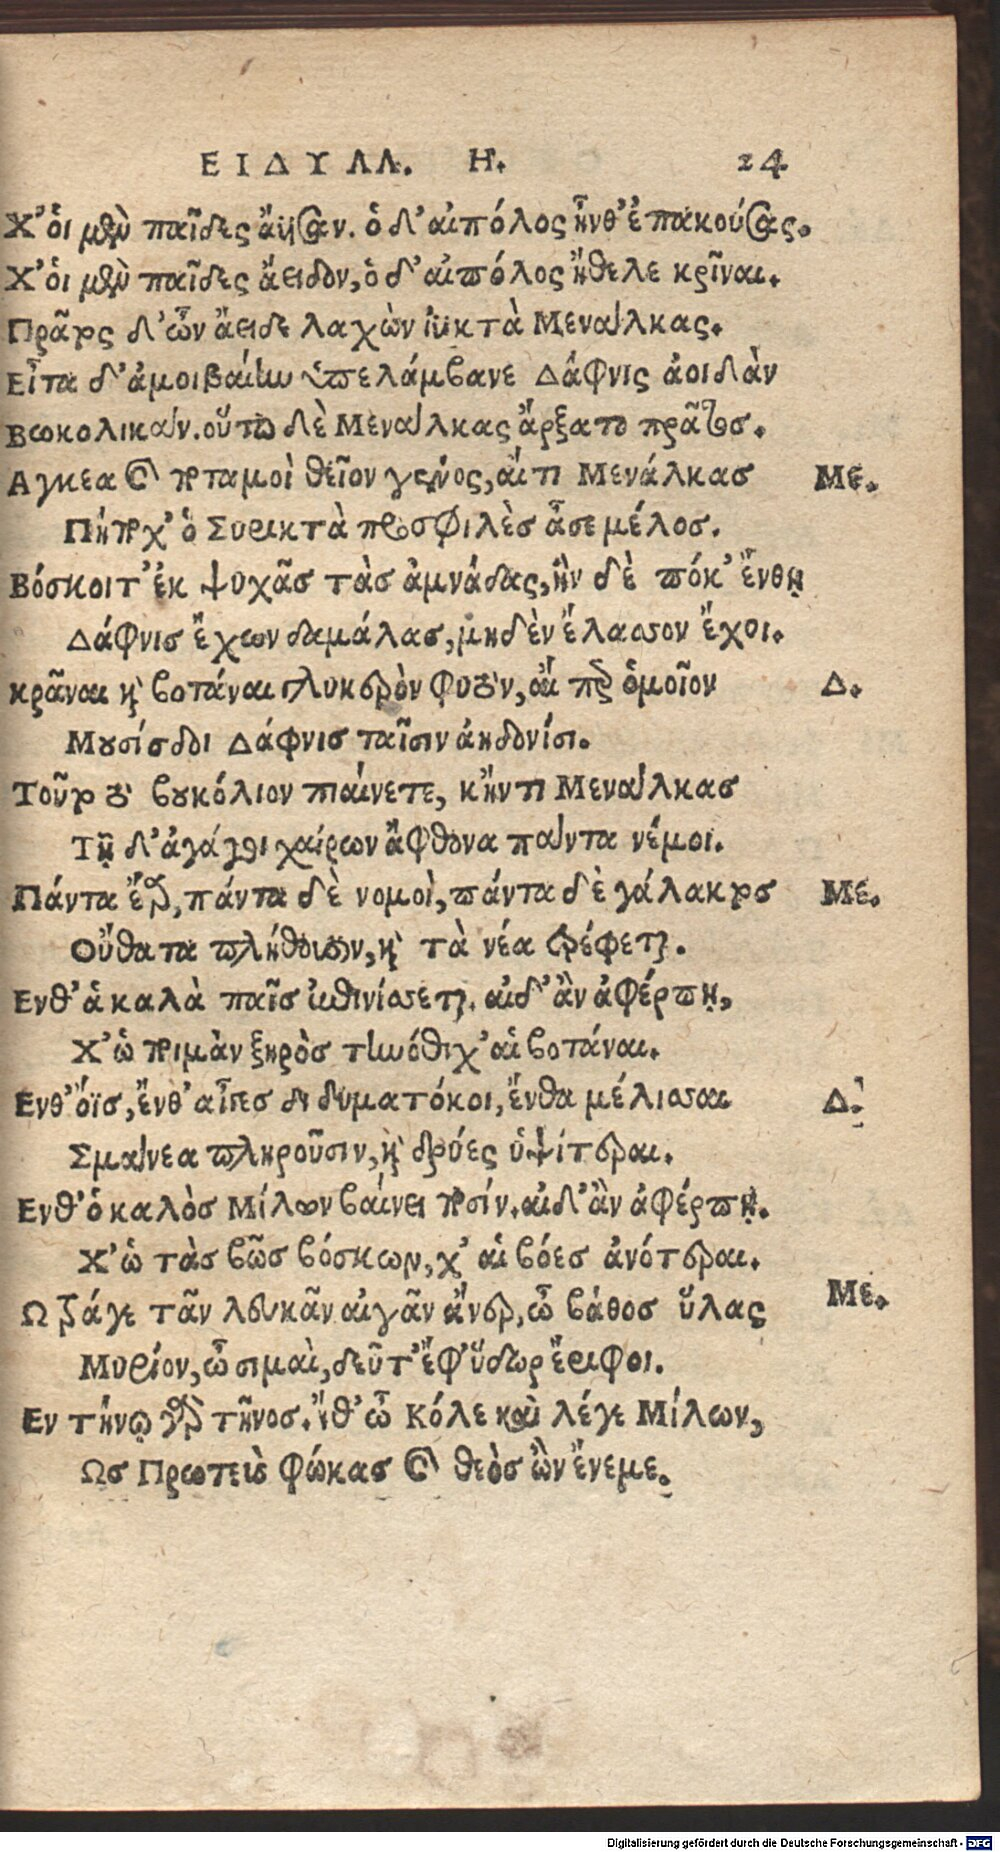 ΕΙΔΥΛΛ. Η. 24
Χ' ὁι μὲν παῖδες ἄϋσαν. ὁ δ' αἰπόλος ἦνθ' ἐπακούσας.
Χ' ὁι μὲν παῖδες ἄειδον, ὁ δ' αἰπόλος ἤθελε κρῖναι.
Πρᾶτος δ' ὦν ἄειδε λαχὼν ἰϋκτὰ Μενάλκας.
Εἶτα δ' ἀμοιβαίην ὑπελάμβανε Δάφνις ἀοιδὰν
Βωκολικάν. οὕτω δὲ Μενάλκας ἄρξατο πρᾶτος.
Αγκεα καὶ ποταμοὶ θεῖον γένος, αἴ τι Μενάλκας Με.
Πήποχ' ὁ Συρικτὰ προσφιλὲς ἆσε μέλος.
Βόσκοιτ' ἐκ ψυχᾶς τὰς ἀμνάδας, ἢν δὲ πόκ' ἔνθῃ
Δάφνις ἔχων δαμάλας, μηδὲν ἔλασσον ἔχοι.
κρᾶναι καὶ βοτάναι γλυκερὸν φυτὸν, αἴ περ ὁμοῖον Δ.
Μουσίσδοι Δάφνις ταῖσιν ἀηδονίσι.
Τοῦτο τὸ βουκόλιον πιαίνετε, κἤν τι Μενάλκας
Τῇδ' ἀγάγοι χαίρων ἄφθονα πάντα νέμοι.
Πάντα ἔαρ, πάντα δὲ νομοὶ, πάντα δὲ γάλακτος Με.
Οὔθατα πλήθουσιν, καὶ τὰ νέα τρέφεται.
Ενθ' ἁ καλὰ παῖς ἐπινίσσεται. αἰ δ' ἂν ἀφέρπῃ,
Χ' ὡ ποιμὰν ξηρὸς τηνόθι χ' αἱ βοτάναι.
Ενθ' ὄϊς, ἔνθ' αἶγες διδυματόκοι, ἔνθα μέλισσαι Δ.
Σμάνεα πληροῦσιν, καὶ δρύες ὑψίτεραι.
Ενθ' ὁ καλὸς Μίλων βαίνει ποσίν. αἰ δ' ἂν ἀφέρπῃ.
Χ' ὡ τὰς βῶς βόσκων, χ' αἱ βόες αὐότεραι.
Ω τράγε τᾶν λευκᾶν αἰγᾶν ἄνερ, ὦ βάθος ὕλας Με.
Μυρίον, ὦ σιμαὶ, δεῦτ' ἔφ' ὕδωρ ἔριφοι.
Εν τήνῳ γὰρ τῆνος. ἴθ' ὦ Κόλε καὶ λέγε Μίλων,
Ως Πρωτεὺς φώκας καὶ θεὸς ὢν ἔνεμε.
Digitalisierung gefördert durch die Deutsche Forschungsgemeinschaft - DFG